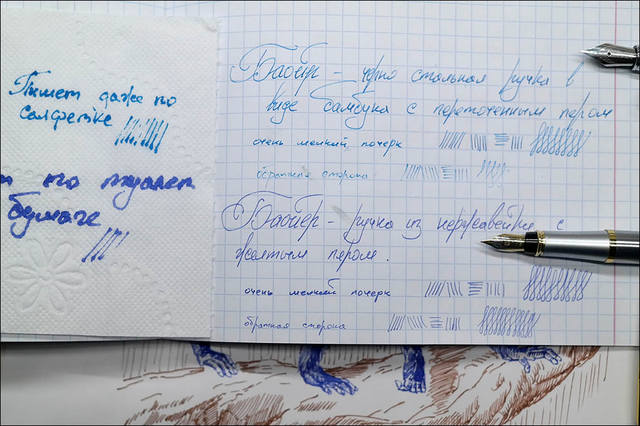 Пишет даже по
салфетке
по туалет
бумаге
Баойр - чёрно стальная ручка в
виде бамбука с переточенным пером
очень мелкий почерк
обратная сторона
Баоер - ручка из нержавейке с
желтым пером.
очень мелкий почерк
обратная сторона